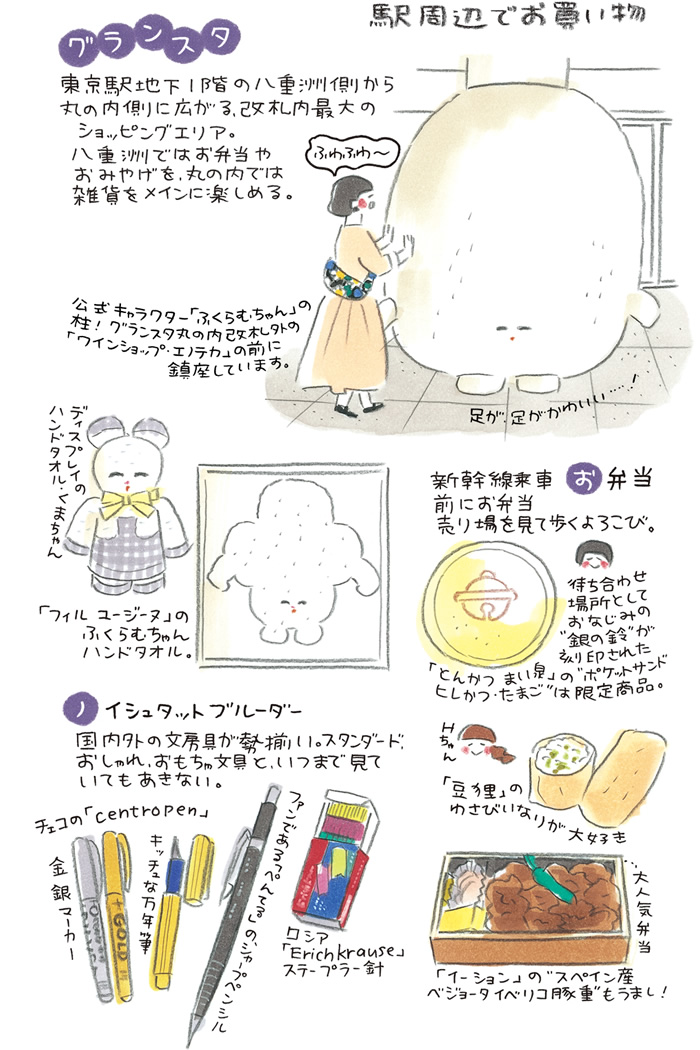 駅周辺でお買い物
グランスタ
東京駅地下1階の八重洲側から
丸の内側に広がる、改札内最大の
ショッピングエリア。
八重洲ではお弁当や
おみやげを、丸の内では
雑貨をメインに楽しめる。
ふわふわ〜
公式キャラクター「ふくらむちゃん」の
柱！グランスタ丸の内改札外の
「ワインショップ・エノテカ」の前に
鎮座しています。
足が、足がかわいい……！
ディスプレイの
ハンドタオル・くまちゃん
「フィル ユージーヌ」の
ふくらむちゃん
ハンドタオル。
新幹線乗車
前にお弁当
売り場を見て歩くよろこび。
お弁当
待ち合わせ
場所として
おなじみの
"銀の鈴"が
刻印された
「とんかつ まい泉」の"ポケットサンド
ヒレかつ・たまご"は限定商品。
Hちゃん
「豆狸」の
わさびいなりが大好き
大人気弁当
「イーション」の"スペイン産
ベジョータイベリコ豚重"もうまし！
ノイシュタットブルーダー
国内外の文房具が勢揃い。スタンダード、
おしゃれ、おもちゃ文具と、いつまで見て
いてもあきない。
チェコの「centropen」
金銀マーカー
+GOLD
キッチュな万年筆
ファンである「ぺんてる」のシャープペンシル
ロシア
「Erichkrause」
ステープラー針